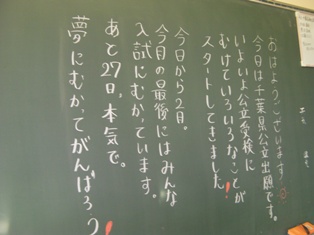 おはようございます!
今日は千葉県公立出願です。
いよいよ公立受検に
むけていろいろなことが
スタートしてきました!
今日から2月。
今月の最後にはみんな
入試にむかっています。
あと27日、本気で。
夢にむかってがんばろう!